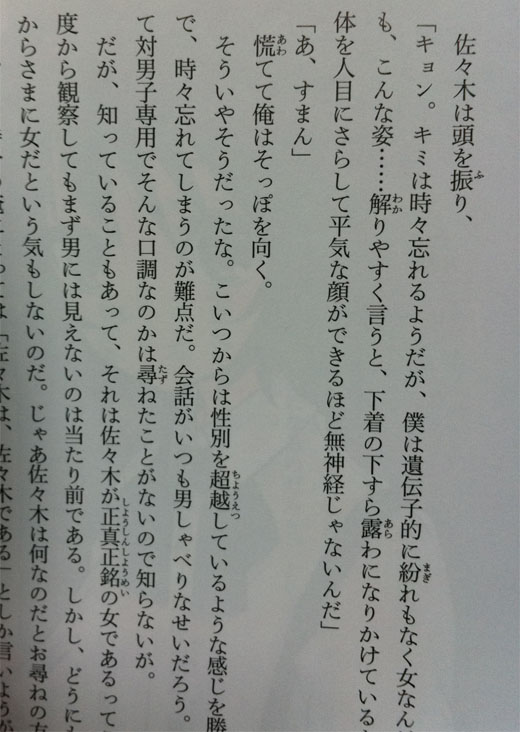 佐々木は頭を振り、
「キョン。キミは時々忘れるようだが、僕は遺伝子的に紛れもなく女なんだ
も、こんな姿……解りやすく言うと、下着の下すら露わになりかけている
体を人目にさらして平気な顔ができるほど無神経じゃないんだ」
「あ、すまん」
慌てて俺はそっぽを向く。
そういやそうだったな。こいつからは性別を超越しているような感じを勝
で、時々忘れてしまうのが難点だ。会話がいつも男しゃべりなせいだろう。
て対男子専用でそんな口調なのかは尋ねたことがないので知らないが。
だが、知っていることもあって、それは佐々木が正真正銘の女であるって
度から観察してもまず男には見えないのは当たり前である。しかし、どうにも
からさまに女だという気もしないのだ。じゃあ佐々木は何なのだとお尋ねの方
「佐々木は、佐々木である」としか言いようが